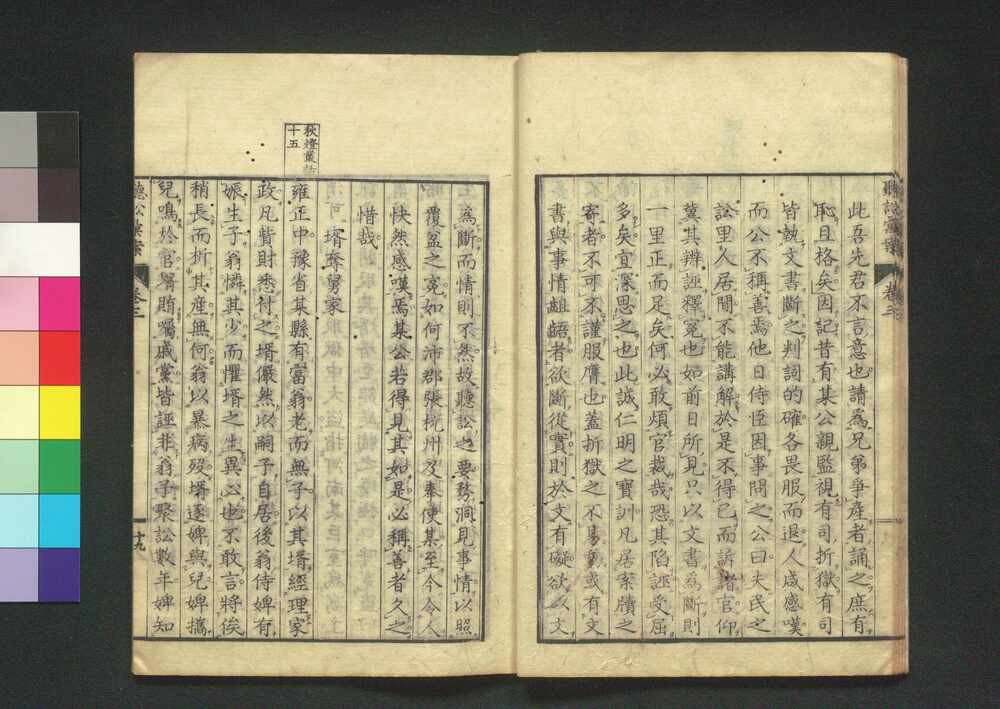 此吾先君不言意也請爲兄弟爭產者誦之庶有
恥且格矣因記昔有某公親監視有司折獄有司
皆執文書斷之判詞的確各畏服而退人咸感嘆
而公不稱善焉他日侍臣因事問之公曰夫民之
訟里人居間不能講解於是不得已而訴諸官仰
冀其辨誣釋冤也如前日所見只以文書爲斷則
一里正而足矣何必敢煩官裁哉恐其陷誣受屈
多矣宜深思之也此誠仁明之寶訓凡居案牘之
寄者不可不謹服膺也蓋折獄之不易或有文
書與事情齟齬者欲斷從實則於文有礙欲以文
爲斷而情則不然故聽訟之要務洞見事情以照
覆盆之冤如何沛郡張杭州及奉使某至今令人
快然感嘆焉某公若得見其如是必稱善者久之
惜哉
可壻奪舅家
秋燈叢話
十五
雍正中豫省某縣有富翁老而無子以其壻經理家
政凡貲財悉付之壻儼然以嗣子自居後翁侍婢有
娠生子翁憐其少而懼壻之生異心也不敢言將俟
稍長而析其產無何翁以暴病歿壻逐婢與兒婢攜
兒鳴於官壻賄囑戚黨皆誣非翁子聚訟數年婢知
卷三
十九